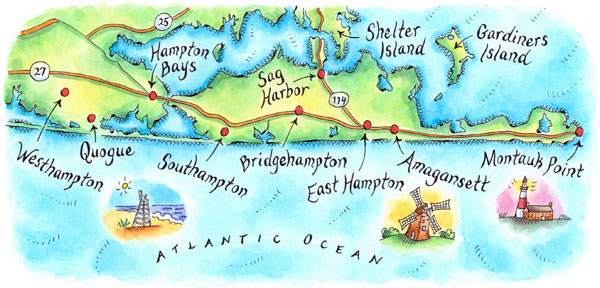 25
Shelter
Island
Gardiners
Island
Hampton
Bays
27
Sag
Harbor
114
Westhampton
Quogue
Southampton
Bridgehampton
East Hampton
Amagansett
Montauk Point
ATLANTIC OCEAN